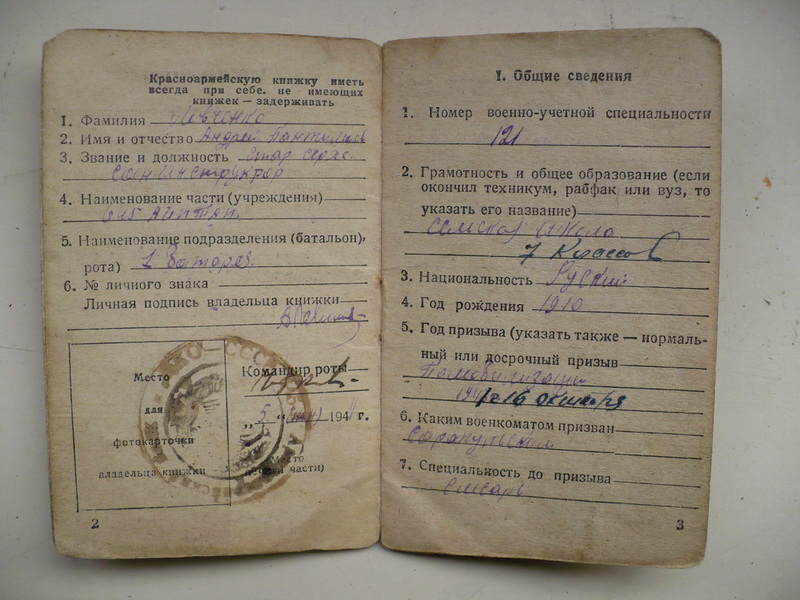 Красноармейскую книжку иметь
всегда при себе. не имеющих
книжек — задерживать
1. Фамилия
2. Имя и отчество Андрей
3. Звание и должность Стар серж.
Санинструктор
4. Наименование части (учреждения)
5. Наименование подразделения (батальон),
рота) 1 батарея
6. № личного знака
Личная подпись владельца книжки
Место
для
фотокарточки
владельца книжки
Командир роты
„5 “ 194 г.
Место
печати части)
СССР
2
I. Общие сведения
1. Номер военно-учетной специальности
121
2. Грамотность и общее образование (если
окончил техникум, рабфак или вуз, то
указать его название)
школа
7 классов
3. Национальность Руский
4. Год рождения 1910
5. Год призыва (указать также — нормаль-
ный или досрочный призыв
По мобилизации
16 октября
6. Каким военкоматом призван
Сарапульским
7. Специальность до призыва
слесарь
3